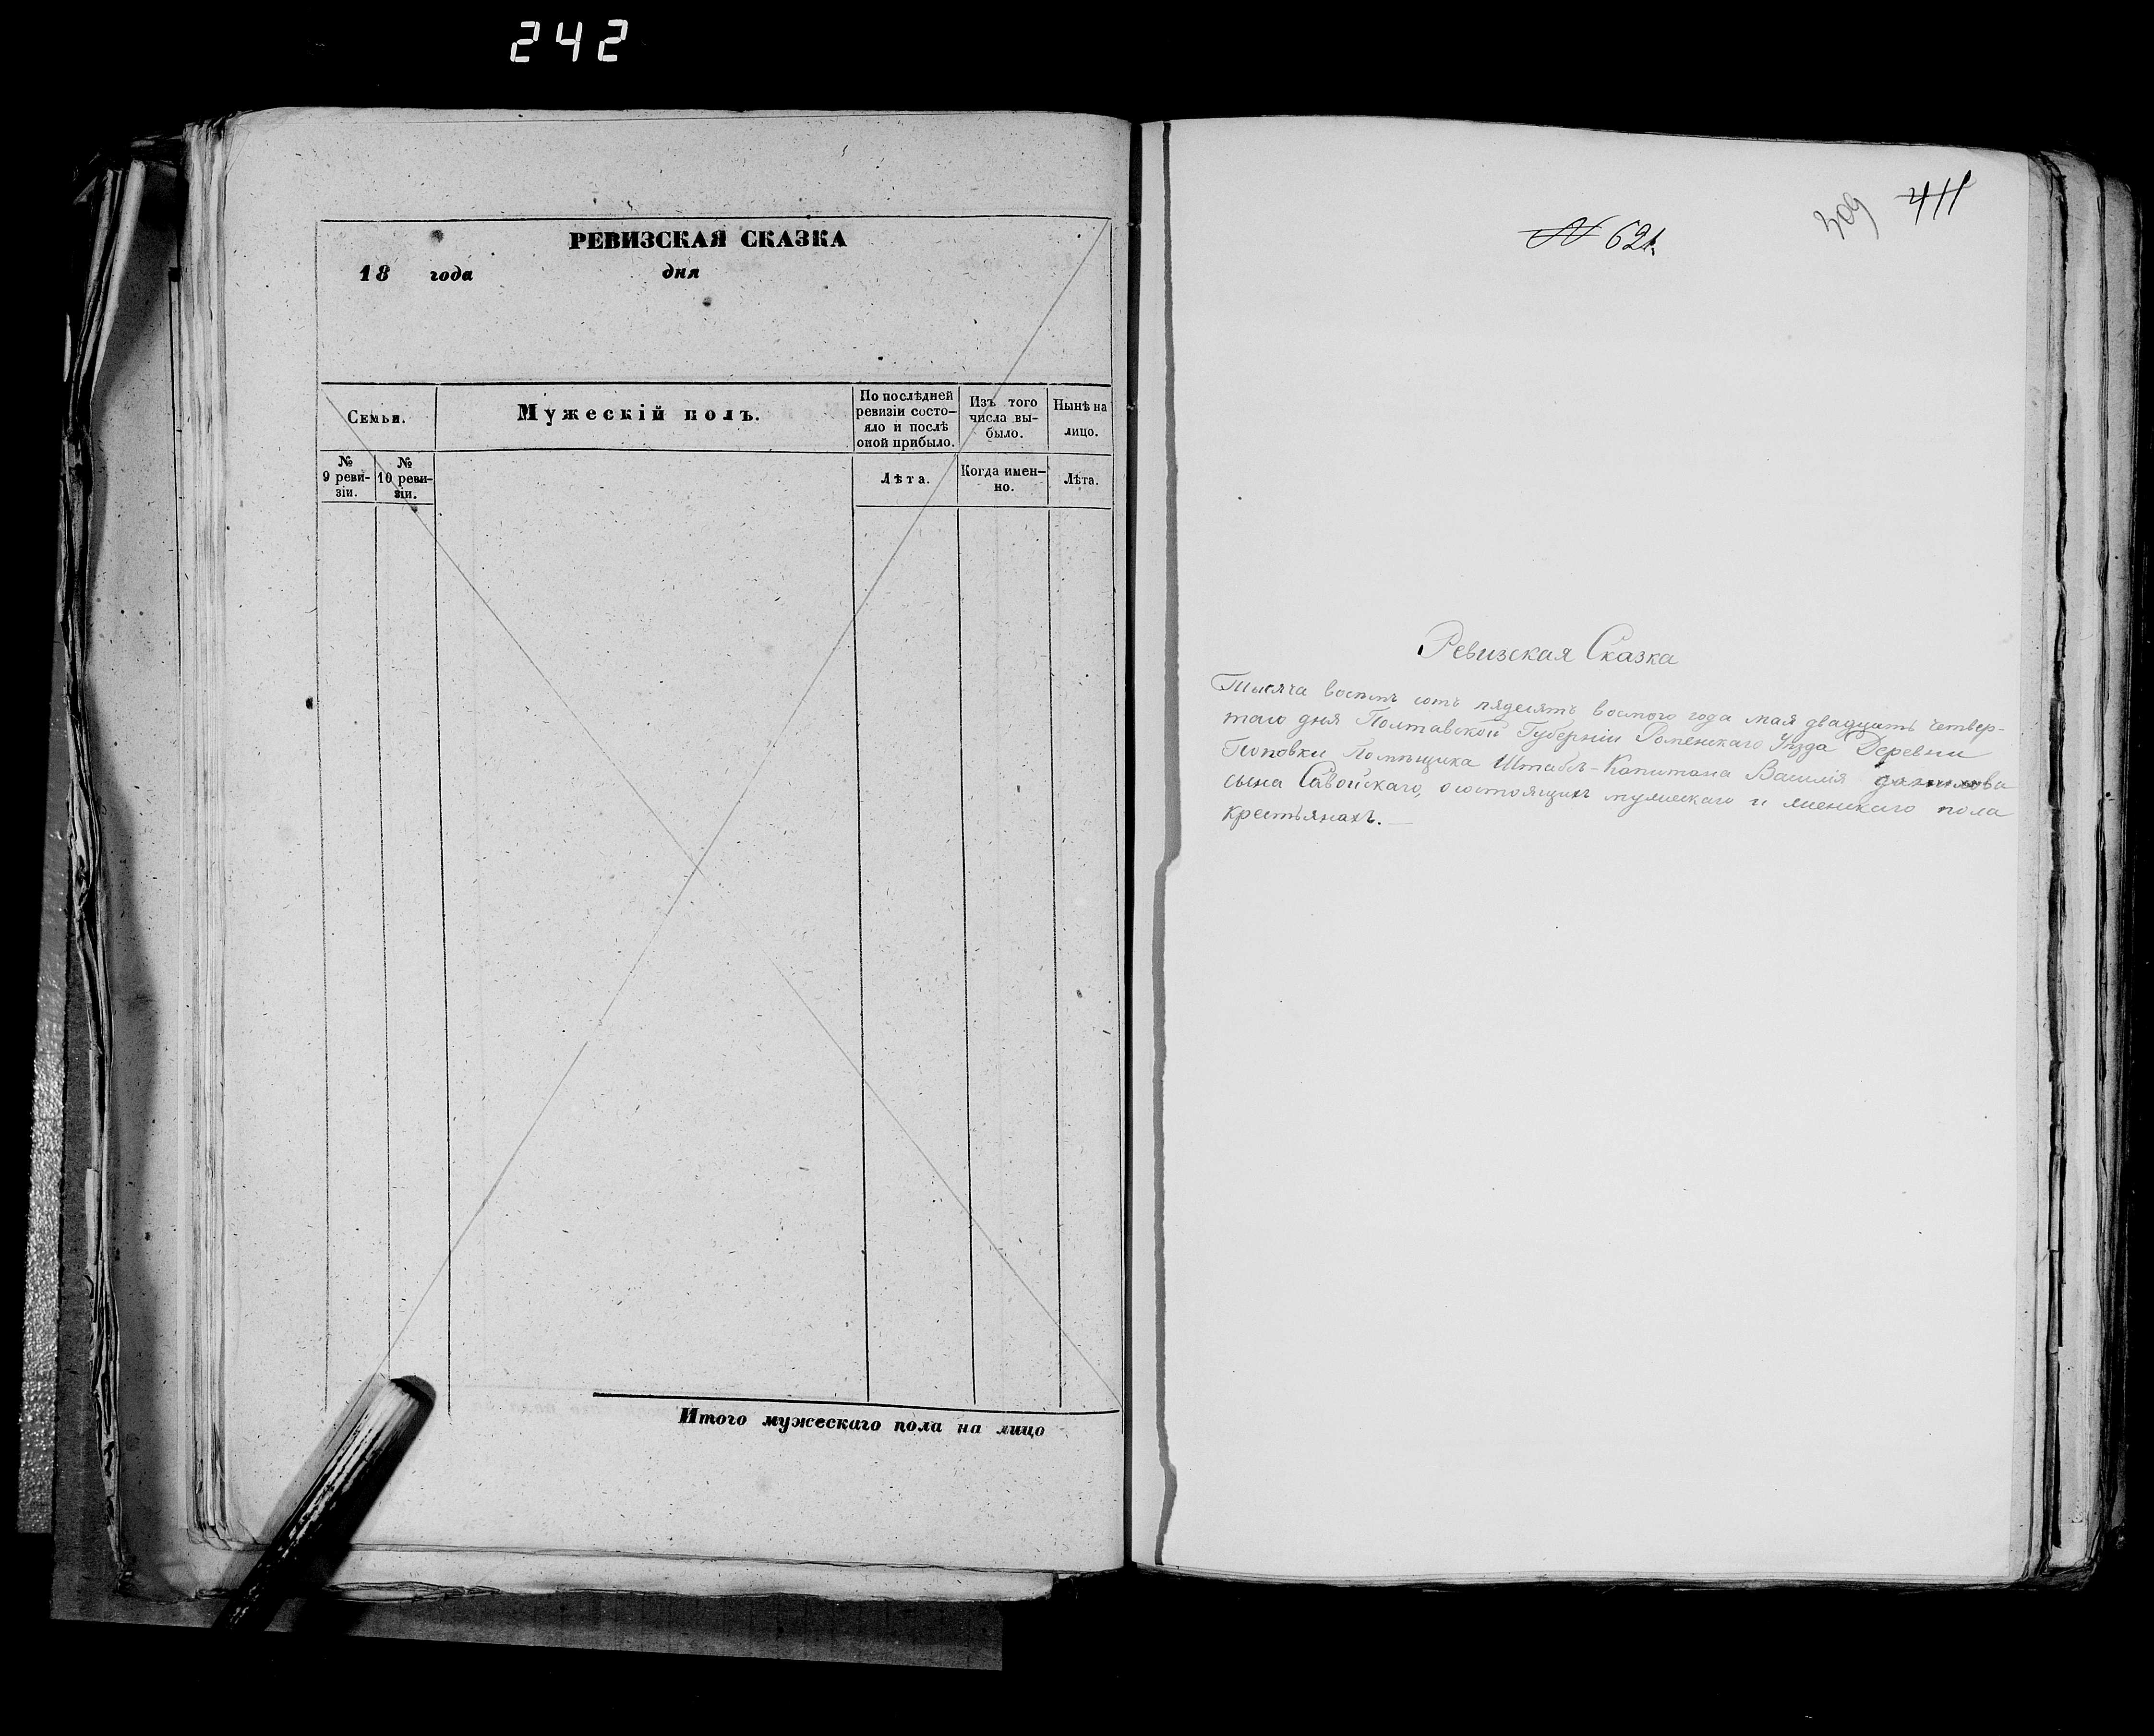 242
РЕВИЗСКАЯ СКАЗКА
18 года дня
Семьи.
Мужескій полъ.
По послѣдней
ревизіи состо-
яло и послѣ
оной прибыло.
Изъ того
числа вы-
было.
Нынѣ на
лицо.
№
9 реви-
зіи.
№
10 реви-
зіи.
Лѣта.
Когда имен-
но.
Лѣта.
Итого мужескаго пола на лицо
№ 621.
309
411
Ревизская Сказка
Тысяча восемь сотъ пядесятъ восмого года мая двадцать четвер-
таго дня Полтавской Губерніи Роменскаго Уѣзда Деревни
Поповки Помѣщика Штабсъ-Капитана Василія данилова
сына Савойскаго, о состоящихъ мужескаго и женскаго пола
крестьянахъ.—